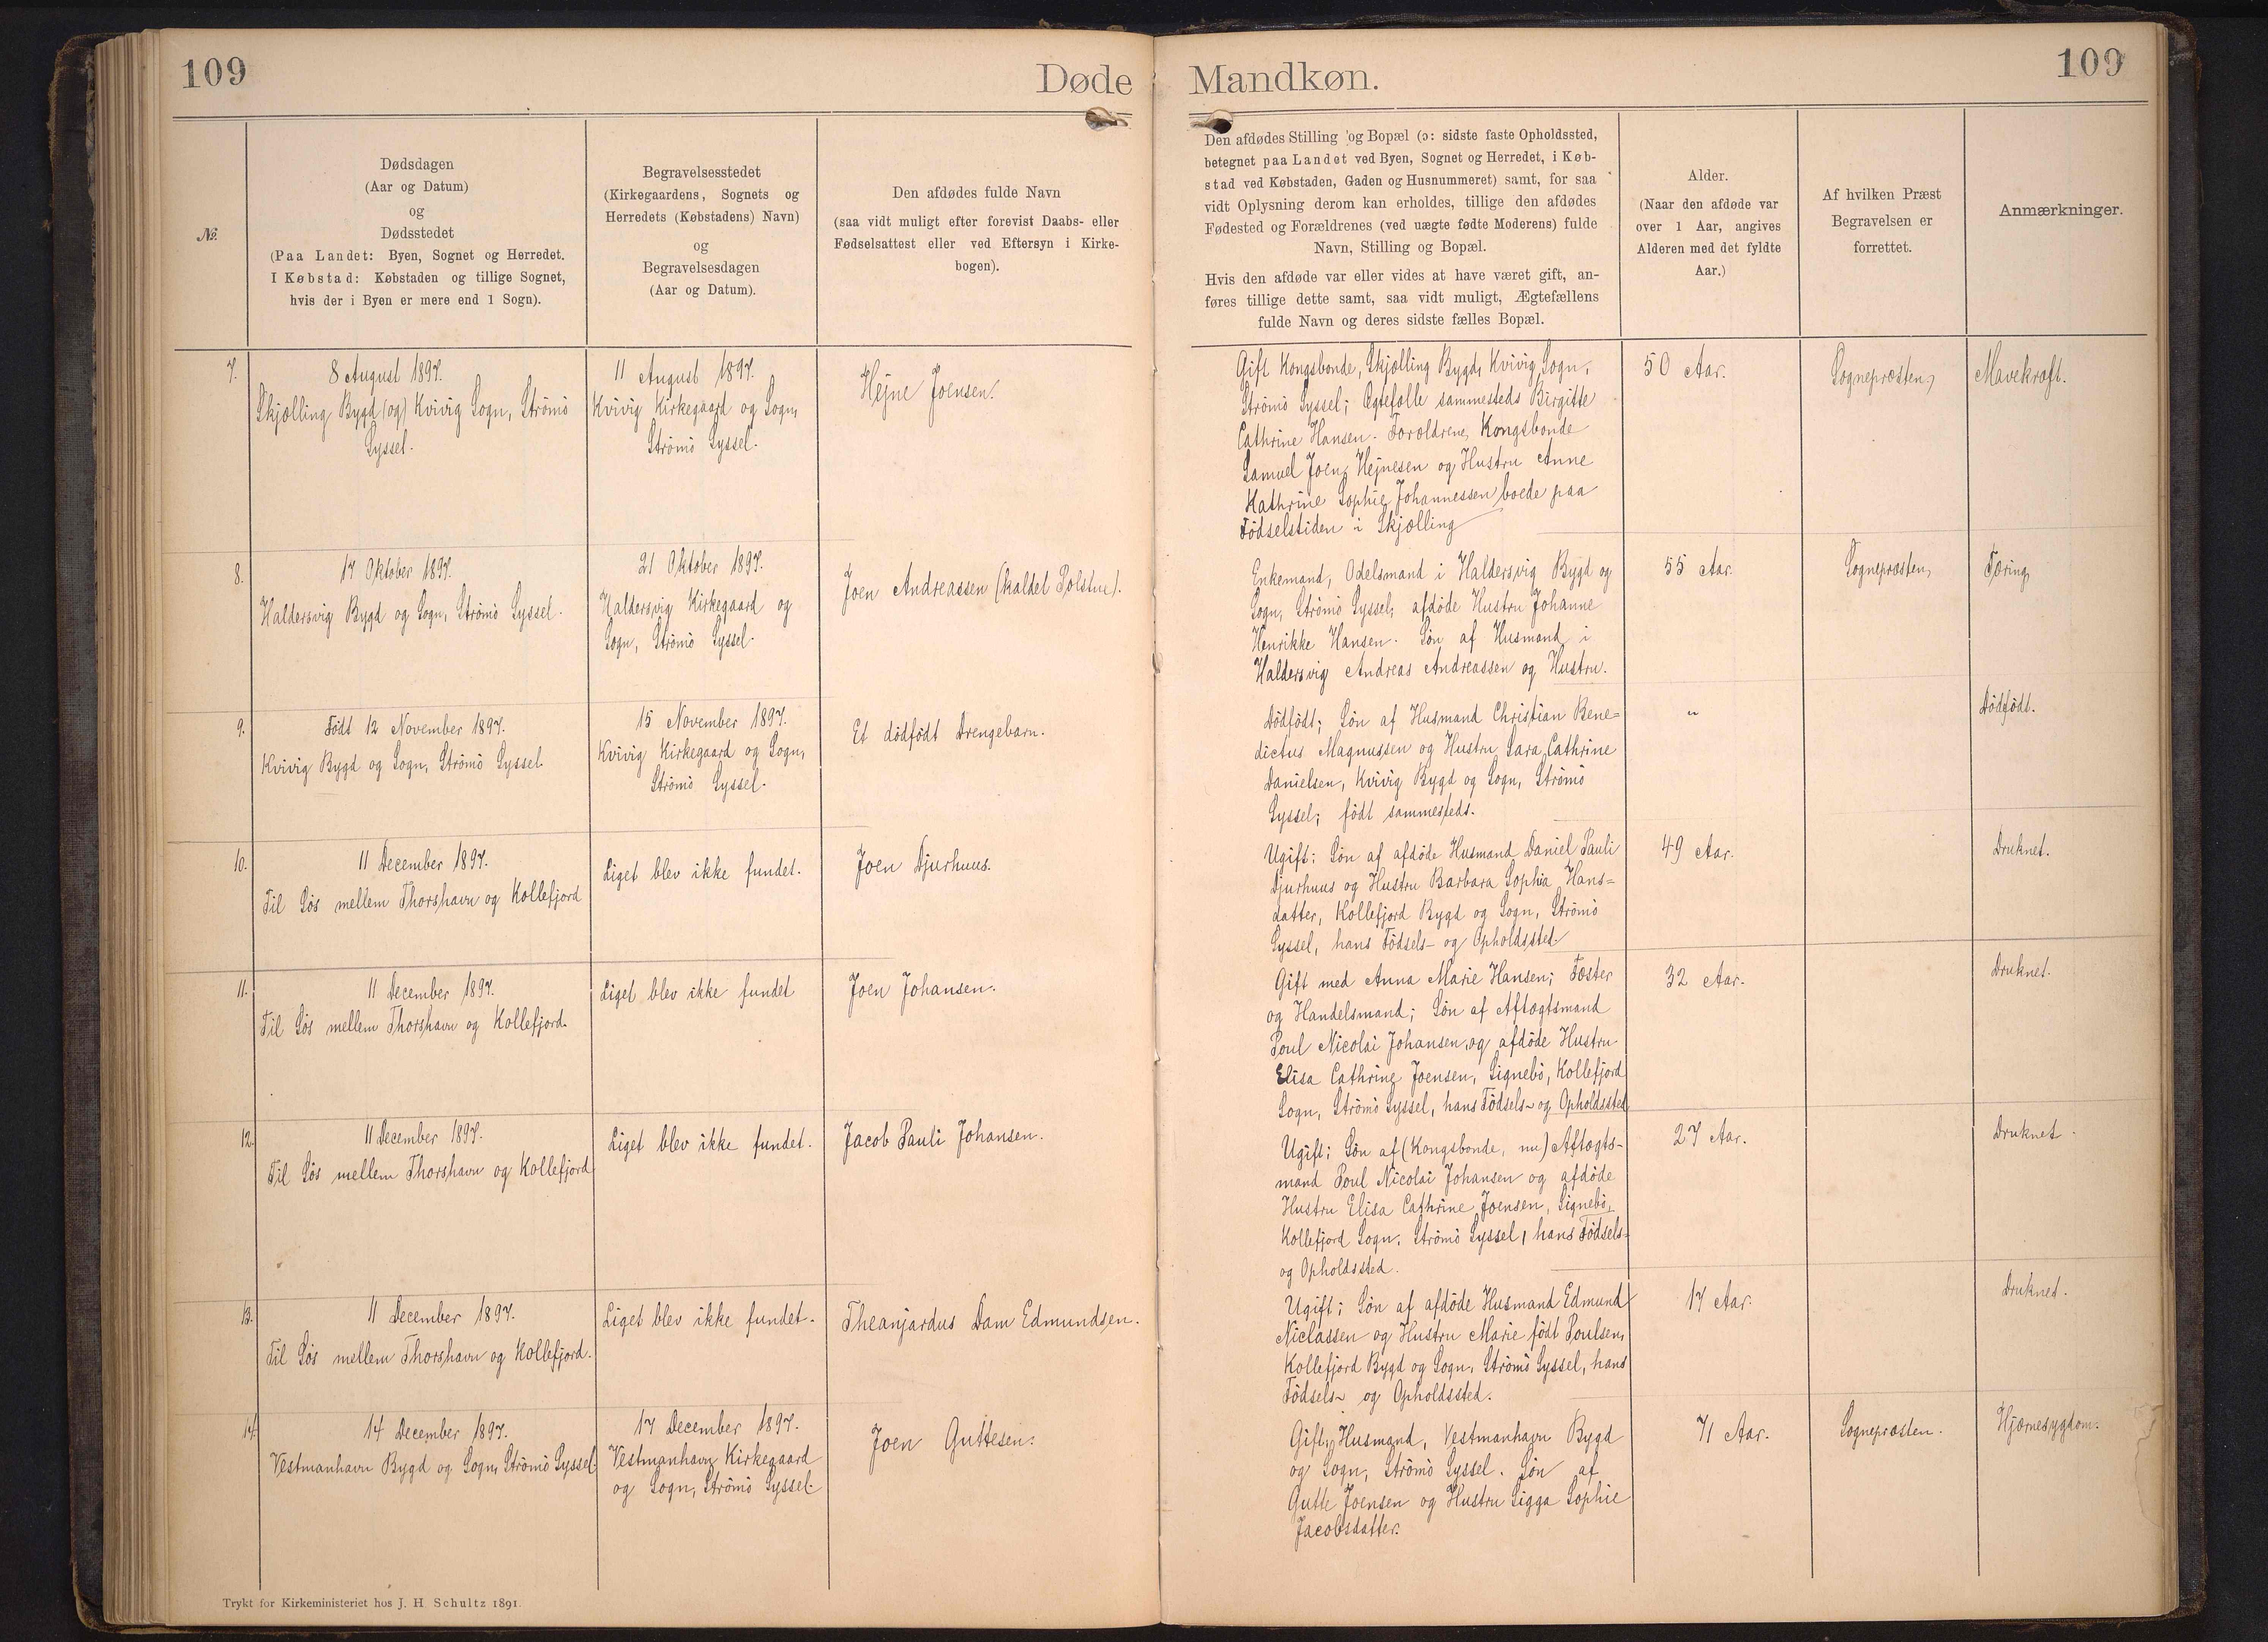 109
Døde
Mandkøn.
109
№
Dødsdagen
(Aar og Datum)
og
Dødsstedet
(Paa Landet: Byen, Sognet og Herredet.
I Købstad: Købstaden og tillige Sognet,
hvis der i Byen er mere end 1 Sogn).
Begravelsesstedet
(Kirkegaardens, Sognets og
Herredets (Købstadens) Navn)
og
Begravelsesdagen
(Aar og Datum).
Den afdødes fulde Navn
(saa vidt muligt efter forevist Daabs- eller
Fødselsattest eller ved Eftersyn i Kirke-
bogen).
Den afdødes Stilling og Bopæl (ɔ: sidste faste Opholdssted,
betegnet paa Landet ved Byen, Sognet og Herredet, i Køb-
stad ved Købstaden, Gaden og Husnummeret) samt, for saa
vidt Oplysning derom kan erholdes, tillige den afdødes
Fødested og Forældrenes (ved uægte fødte Moderens) fulde
Navn, Stilling og Bopæl.
Hvis den afdøde var eller vides at have været gift, an-
føres tillige dette samt, saa vidt muligt, Ægtefællens
fulde Navn og deres sidste fælles Bopæl.
Alder.
(Naar den afdøde var
over 1 Aar, angives
Alderen med det fyldte
Aar.)
Af hvilken Præst
Begravelsen er
forrettet.
Anmærkninger.
7.
8 August 1897.
Skjælling Bygd (og) Kvivig Sogn, Strömö
Syssel.
11 August 1897.
Kvivig Kirkegaard og Sogn,
Strömö Syssel.
Hejne Joensen.
Gift Kongsbonde, Skjælling Bygd, Kvivig Sogn,
Strömö Syssel; Ægtefælle sammesteds Birgitte
Cathrine Hansen. Forældrene, Kongsbonde
Samuel Joen Hejnesen og Hustru Anne
Kathrine Sophie Johannessen boede paa
Födselstiden i Skjælling
50 Aar.
Sognepræsten,
Mavekræft.
8.
17 Oktober 1897.
Haldersvig Bygd og Sogn, Strömö Syssel.
21 Oktober 1897.
Haldersvig Kirkegaard og
Sogn, Strömö Syssel.
Joen Andreassen (kaldet Solstue).
Enkemand, Odelsmand i Haldersvig Bygd og
Sogn, Strömö Syssel, afdöde Hustru Johanne
Henrikke Hansen. Sön af Husmand i
Haldersvig Andreas Andreassen og Hustru.
55 Aar.
Sognepræsten,
Tæring,
9.
Födt 12 November 1897.
Kvivig Bygd og Sogn, Strömö Syssel.
15 November 1897.
Kvivig Kirkegaard og Sogn,
Strömö Syssel.
Et dödfödt Drengebarn.
Dödfödt; Sön af Husmand Christian Bene=
dictus Magnussen og Hustru Sara Cathrine
Danielsen, Kvivig Bygd og Sogn, Strömö
Syssel; födt sammesteds.
"
Dödfödt.
10.
11 December 1897.
Til Sös mellem Thorshavn og Kollefjord
Liget blev ikke fundet.
Joen Djurhuus.
Ugift; Sön af afdöde Husmand Daniel Pauli
Djurhuus og Hustru Barbara Sophia Hans=
datter, Kollefjord Bygd og Sogn, Strömö
Syssel, hans Födsels- og Opholdssted
49 Aar.
Druknet.
11.
11 December 1897.
Til Sös mellem Thorshavn og Kollefjord.
Liget blev ikke fundet
Joen Johansen.
Gift med Anna Marie Hansen; Fæster
og Handelsmand; Sön af Aftægtsmand
Poul Nicolai Johansen, og afdöde Hustru
Elisa Cathrine Joensen, Signebö, Kollefjord
Sogn, Strömö Syssel, hans Födsels- og Opholdssted
32 Aar.
Druknet.
12.
11 December 1897.
Til Sös mellem Thorshavn og Kollefjord
Liget blev ikke fundet.
Jacob Pauli Johansen.
Ugift; Sön af (Kongsbonde, nu) Aftægts-
mand Poul Nicolai Johansen og afdöde
Hustru Elisa Cathrine Joensen, Signebö,
Kollefjord Sogn, Strömö Syssel, hans Födsels-
og Opholdssted.
27 Aar.
Druknet.
13.
11 December 1897.
Til Sös mellem Thorshavn og Kollefjord.
Liget blev ikke fundet.
Theanjardus Dam Edmundsen.
Ugift; Sön af afdöde Husmand Edmund
Niclassen og Hustru Marie födt Poulsen,
Kollefjord Bygd og Sogn, Strömö Syssel, hans
Födsels- og Opholdssted.
17 Aar.
Druknet.
14.
14 December 1897.
Vestmanhavn Bygd og Sogn, Strömö Syssel.
17 December 1897.
Vestmanhavn Kirkegaard
og Sogn, Strömö Syssel.
Joen Guttesen.
Gift, Husmand, Vestmanhavn Bygd
og Sogn, Strömö Syssel. Sön af
Gutte Joensen og Hustru Sigga Sophie
Jacobsdatter.
71 Aar.
Sognepræsten.
Hjærnesygdom.
Trykt for Kirkeministeriet hos J. H. Schultz 1891.